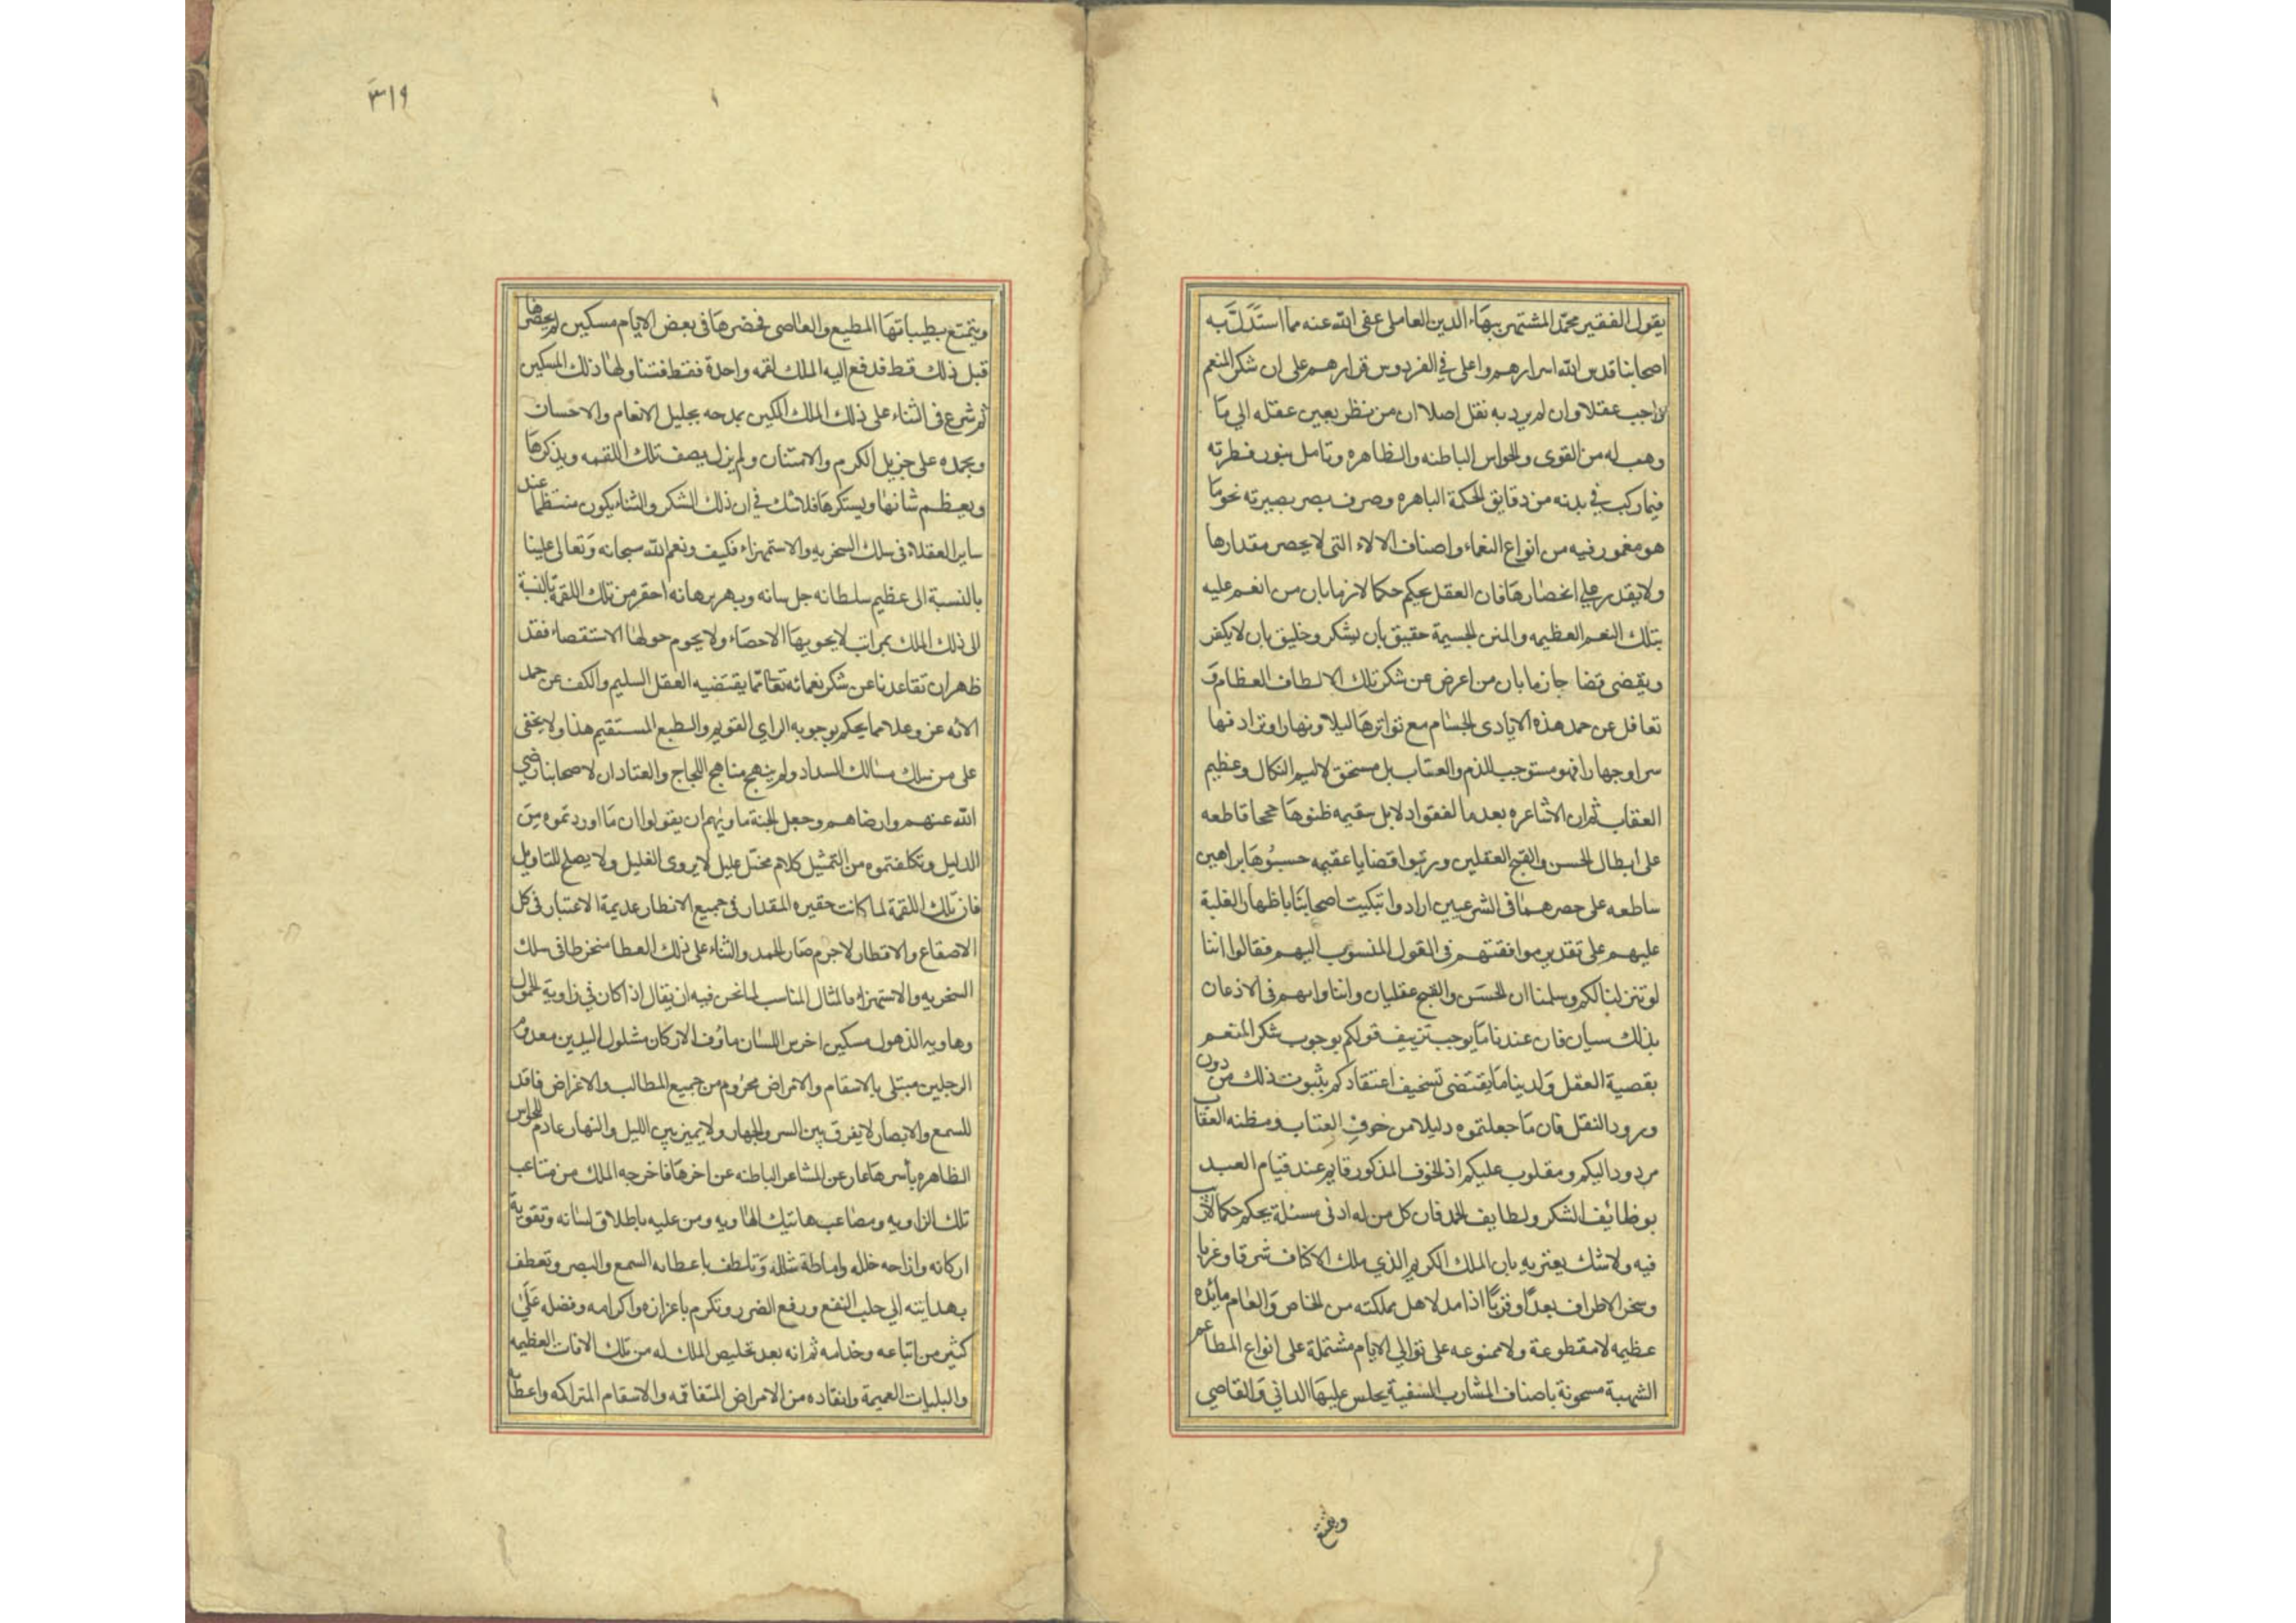 يقول الفقير محمد المشتهر ببهاء الدين العاملى عفى الله عنه مما استدل به
اصحابنا قدس الله اسرارهم واعلى في الفردوس قرارهم على ان شكر المنعم
واجب عقلا وان لم يرد به نقل اصلا ان من نظر بعين عقله الي ما
وهب له من القوى والحواس الباطنه والظاهره وتامل بنور فطرته
فيما ركب في بدنه من دقايق الحكمة الباهره وصرف بصر بصيرته نحو ما
هو مغمور فيه من انواع النعماء واصناف الالاء التى لا يحصر مقدارها
ولا يقدر على انحصارها فان العقل يحكم حكما لازما بان من انعم عليه
بتلك النعم العظيمه والمنن الجسيمة حقيق بان يشكر وخليق بان لا يكفر
ويقضى قضا جازما بان من اعرض عن شكر تلك الالطاف العظام و
تغافل عن حمد هذه الايادى الجسام مع تواترها ليلا ونهارا وترادفها
سرا وجهارا فهو مستوجب للذم والعتاب بل مستحق لاليم النكال وعظيم
العقاب ثم ان الاشاعره بعدما لفقوا دلايل سقيمه ظنوها حججا قاطعه
على ابطال الحسن والقبح العقلين ورتبوا قضايا عقيمه حسبوها براهين
ساطعه على حصرهما فى الشرعيين ارادوا تبكيت اصحابنا باظهار الغلبة
عليهم على تقدير موافقتهم فى القول المنسوب اليهم فقالوا اننا
لو تنزلنا لكم وسلمنا ان الحسن والقبح عقليان واننا وانهم فى الاذعان
بذلك سيان فان عندنا ما يوجب تزييف قولكم بوجوب شكر المنعم
بقصية العقل ولدينا ما يقتضى تسخيف اعتقادكم بثبوت ذلك من دون
ورود النقل فان ما جعلتموه دليلا من خوف العتاب ومظنه العقاب
مردود اليكم ومقلوب عليكم اذ الخوف المذكور قايم عند قيام العبد
بوظائف الشكر ولطايف الحمد فان كل من له ادنى مسئلة يحكم حكما لا ريب
فيه ولا شك يعتريه بان الملك الكريم الذي ملك الاكناف شرقا وغربا
وسخر الاطراف بعدا وقربا اذا مد لاهل مملكته من الخاص والعام مائدة
عظيمه لا مقطوعة ولا ممنوعه على توالي الايام مشتملة على انواع المطاعم
الشهية مسحونة باصناف المشارب السنية يجلس عليها الداني والقاصي
ويتمتع
٣١٩
ويتمتع بطيباتها المطيع والعاصى فحضرها فى بعض الايام مسكين لم يحضرها
قبل ذلك قط فدفع اليه الملك لقمه واحدة فقط فتناولها ذلك المسكين
ثم شرع فى الثناء على ذلك الملك المكين يمدحه بجليل الانعام والاحسان
ويحمده على جزيل الكرم والامتنان ولم يزل يصف تلك اللقمه ويذكرها
ويعظم شانها ويستكرها فلا شك في ان ذلك الشكر والثناء يكون منتظما عند
ساير العقلاء فى سلك السخريه والاستهزاء فكيف ونعم الله سبحانه وتعالى علينا
بالنسبة الى عظيم سلطانه جل سانه وبهر برهانه احقر من تلك اللقمة بالنسبة
الى ذلك الملك بمراتب لا يحويها الاحصاء ولا يحوم حولها الاستقصاء فقد
ظهر ان تقاعدنا عن شكر نعمائه تعالى مما يقتضيه العقل السليم والكف عن حمد
الائه عز وعلا مما يحكم بوجوبه الراي القويم والطبع المستقيم هذا ولا يخفى
على من سلك مسالك السداد ولم ينهج مناهج اللجاج والعناد ان لاصحابنا رضي
الله عنهم وارضاهم وجعل الجنة ماويهم ان يقولوا ان ما اوردتموه من
الدليل وتكلفتموه من التمثيل كلام مختل عليل لا يروى الغليل ولا يصلح للتاويل
فان تلك اللقمة لما كانت حقيره المقدار فى جميع الانظار عديمة الاعتبار فى كل
الاصقاع والاقطار لا جرم صار الحمد والثناء على ذلك العطا منخرطا فى سلك
السخريه والاستهزاء فالمثال المناسب لما نحن فيه ان يقال اذا كان في زاوية الخمول
وهاويه الذهول مسكين اخرس اللسان ماؤف الاركان مشلول اليدين معدوم
الرجلين مبتلى بالاسقام والامراض محروم من جميع المطالب والاغراض فاقد
للسمع والابصار لا يفرق بين السر والجهار ولا يميز بين الليل والنهار عادم للحواس
الظاهره بأسرها عار عن المشاعر الباطنه عن اخرها فاخرجه الملك من متاعب
تلك الزاويه ومصاعب هاتيك الهاويه ومن عليه باطلاق لسانه وتقوية
اركانه وازاحه خلله واماطة شلله وتلطف باعطائه السمع والبصر وتعطف
بهدايته الي جلب النفع ورفع الضرر وتكرم باعزازه واكرامه وفضله على
كثير من اتباعه وخدامه ثم انه بعد تخليص الملك له من تلك الافات العظيمه
والبليات العميمة وانقاده من الامراض المتفاقمه والاسقام المتراكمه واعطائه